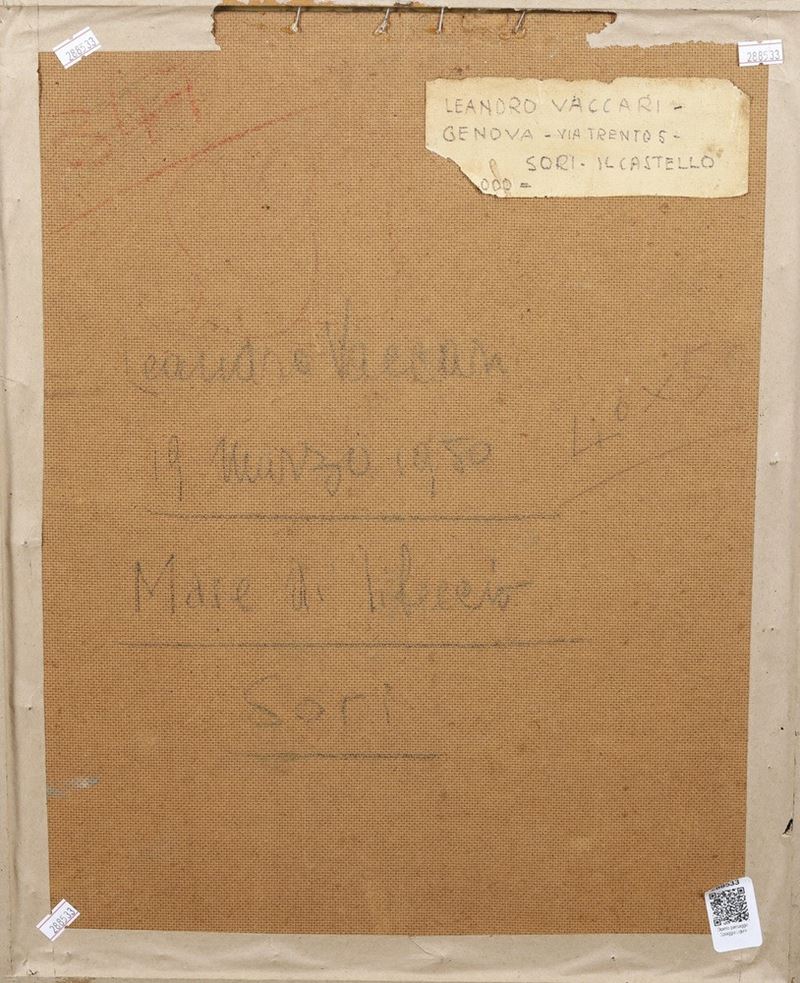 288533
288533
LEANDRO VACCARI -
GENOVA - VIA TRENTO 5 -
SORI - IL CASTELLO
000 =
Leandro Vaccari
19 Marzo 1950
Mare di libeccio
Sori
288533
288533